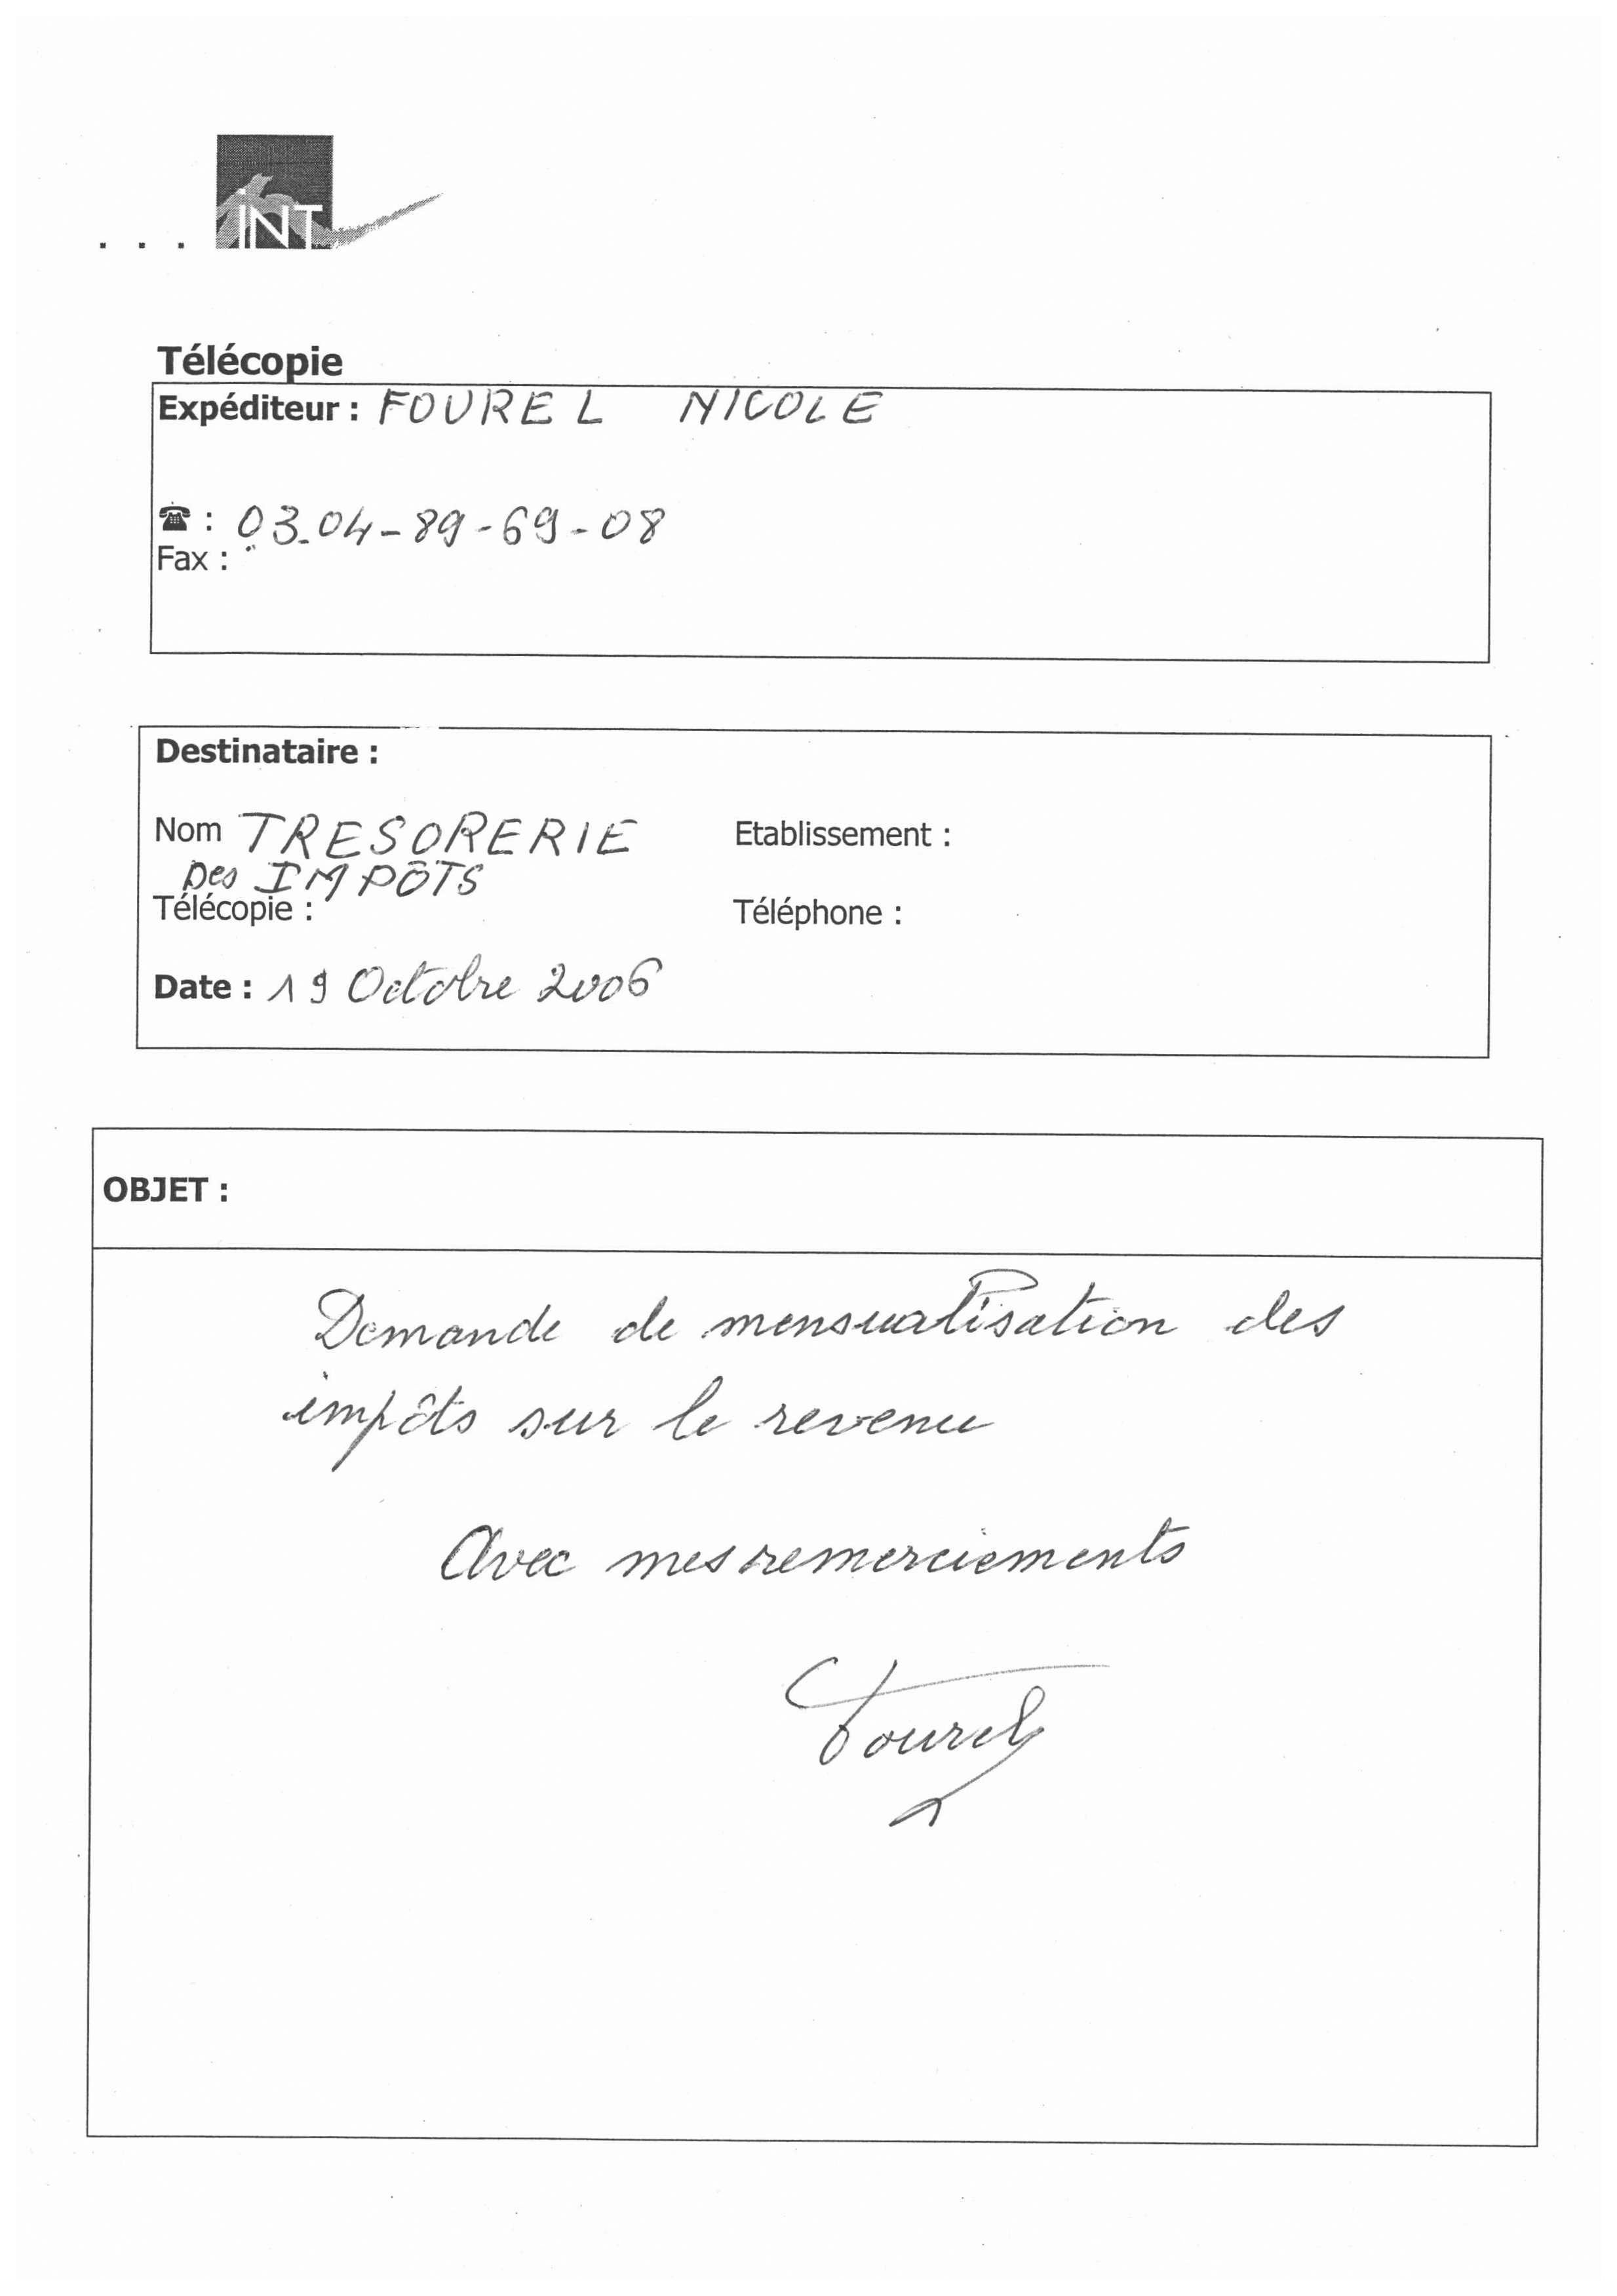 ... iNT
Télécopie
Expéditeur : FOUREL NICOLE
☎ : 03.04-89-69-08
Fax :
Destinataire :
Nom TRESORERIE Etablissement :
Des IMPÔTS
Télécopie : Téléphone :
Date : 19 Octobre 2006
OBJET :
Demande de mensualisation des
impôts sur le revenu
Avec mes remerciements
Fourel